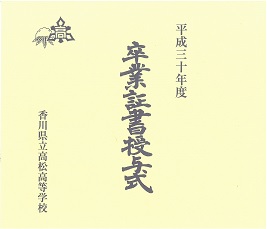 平成三十年度
卒業証書授与式
香川県立高松高等学校